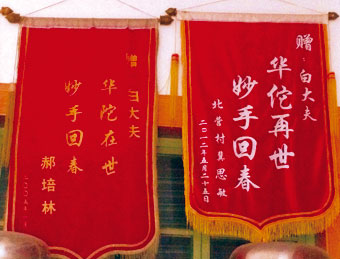 赠：白大夫
华佗在世
妙手回春
郝培林
赠：白大夫
华佗再世
妙手回春
北营村冀思敏
二〇一二年五月二十五日